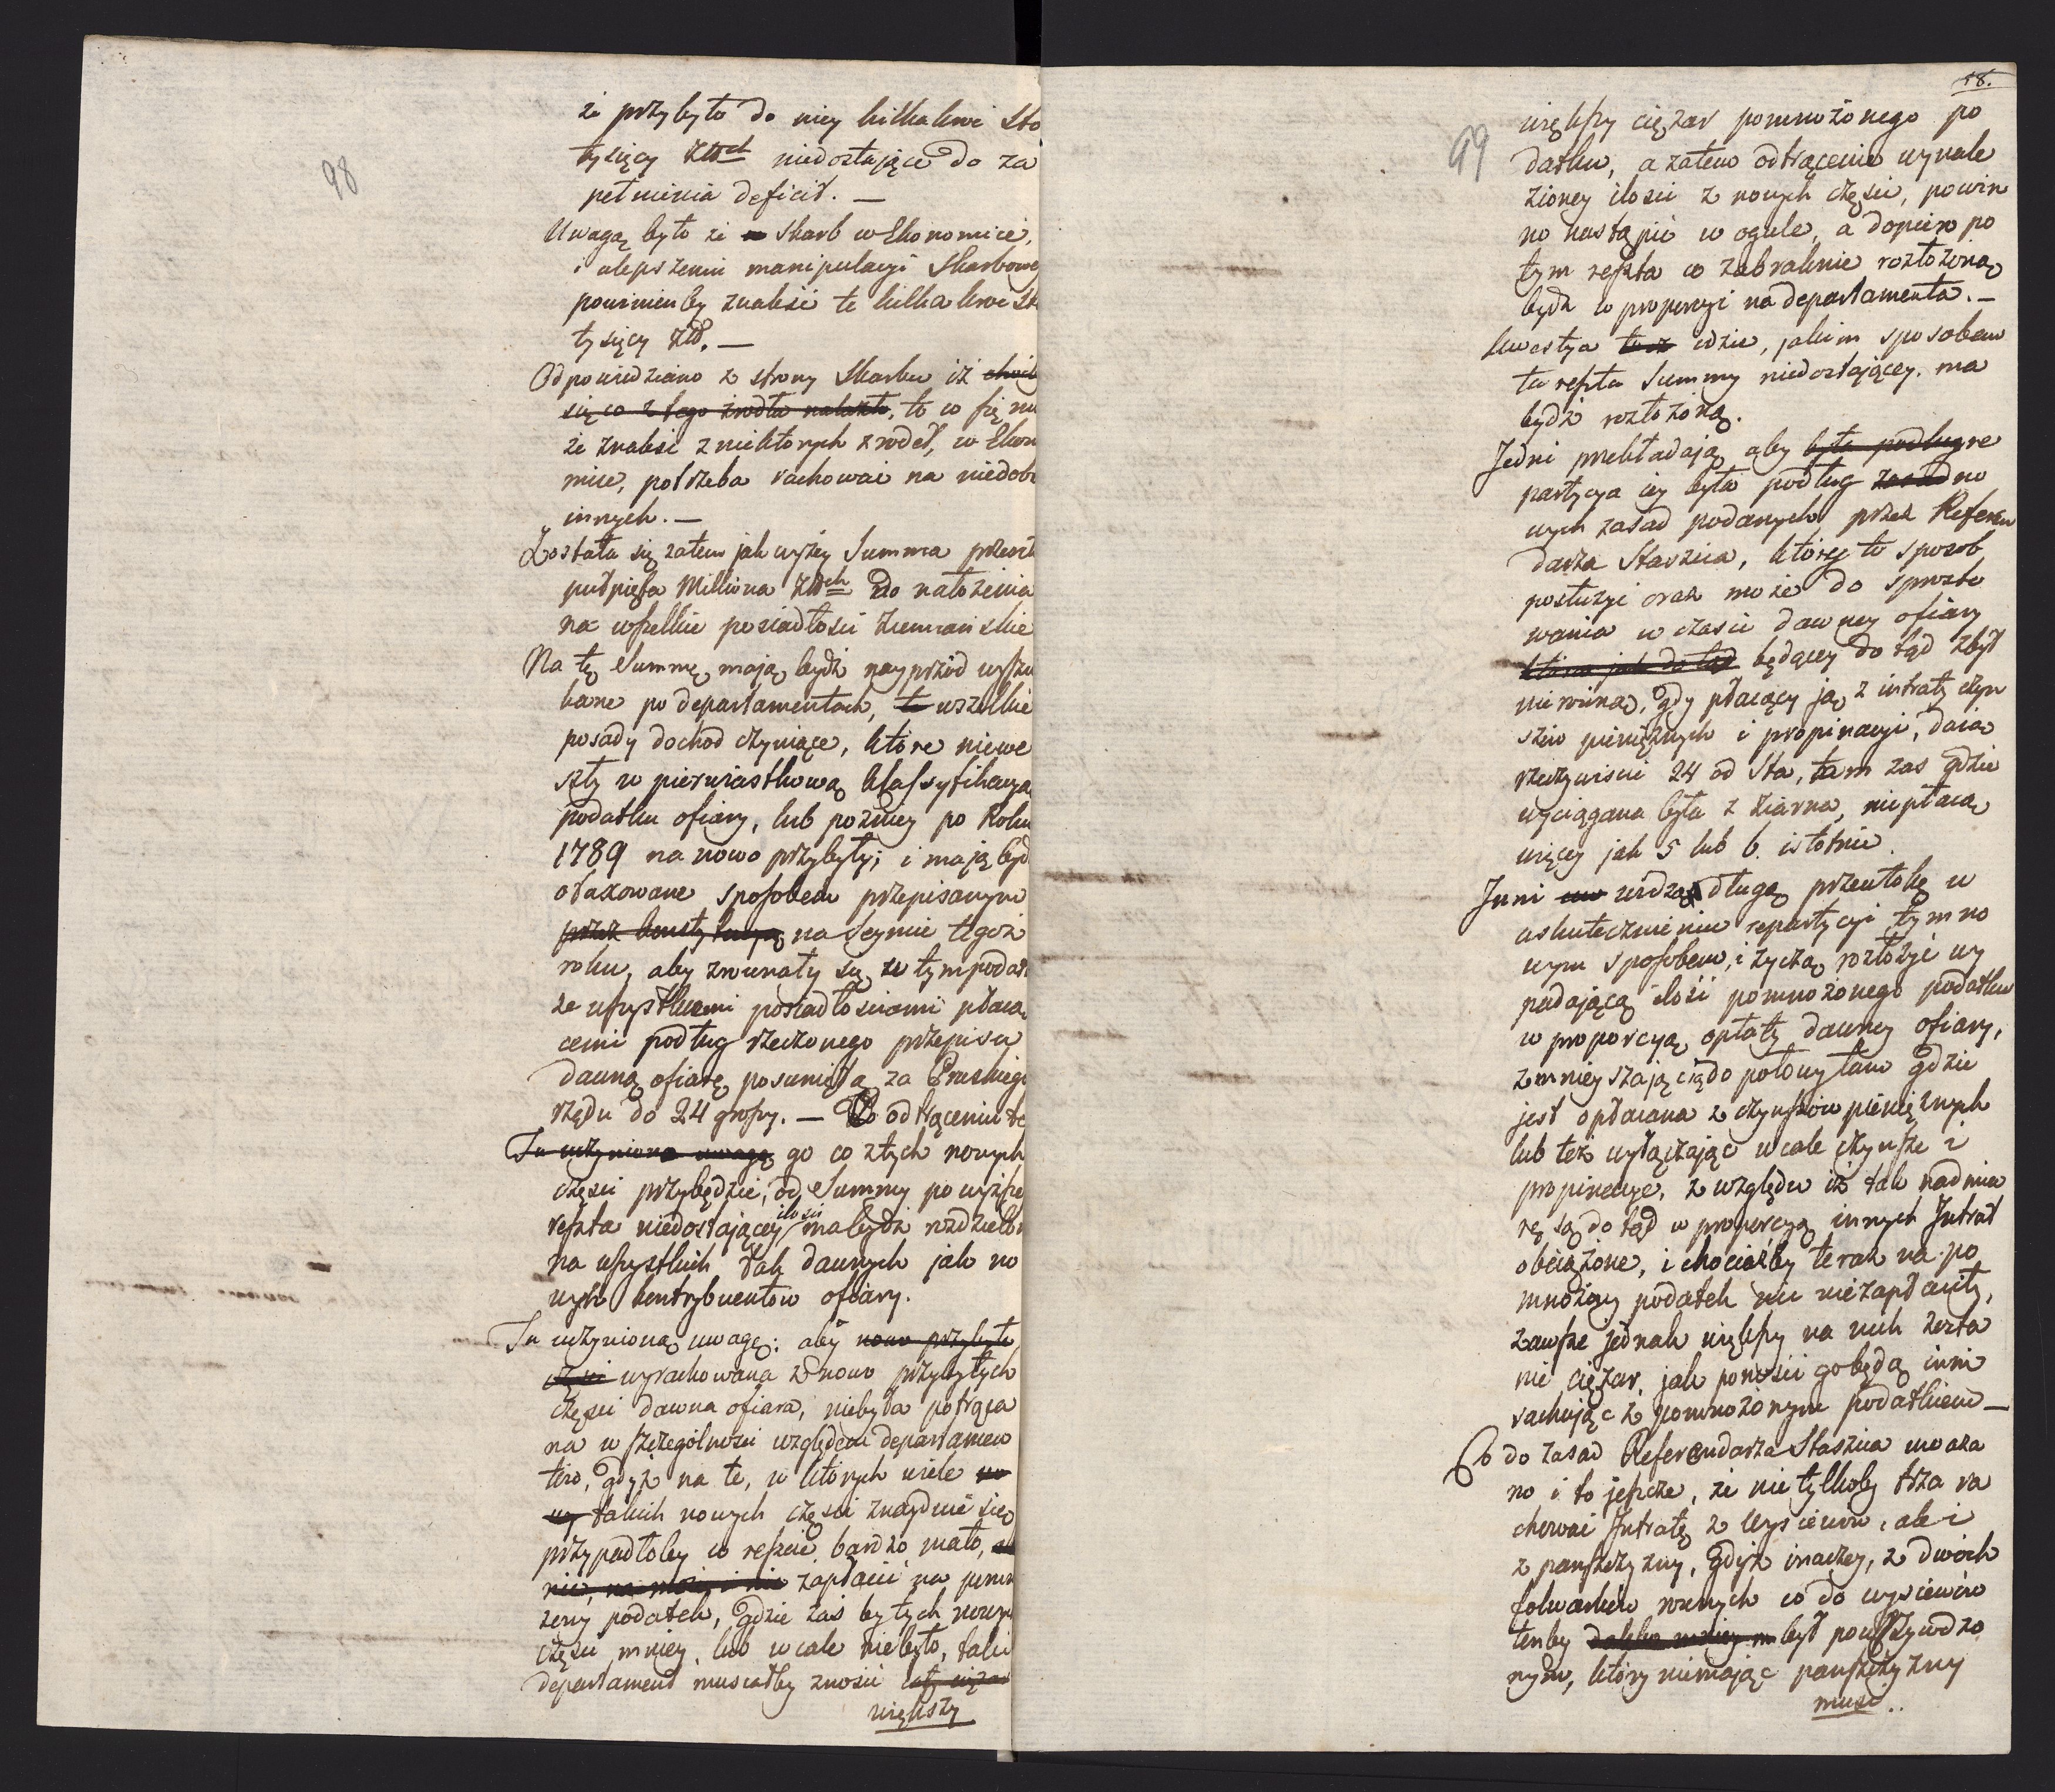 98
że przybyło do niey kilkakroć sto
tysięcy Złłch niedostające do za
pełnienia deficit. —
Uwagą było że Skarb w Ekonomice,
i ulepszeniu manipulacyi Skarbowe
powinienby znaleść te kilkakroć st
tysięcy Złł. —
Odpowiedziano z strony Skarbu iż
się co z tego źrodła nalazło, to co się mo
że znaleść z niektorych zrodeł, w Ekon
mice, potrzeba rachować na niedob
innych. —
Została się zatem jak wyżey Summa
pułpięta Milliona Złłch do nałożenia
na wszelkie posiadłości Ziemianskie
Na tę Summę mają bydź nayprzód wyszu
kane po departamentach, te wszelkie
posady dochod czyniące, które niewe
szły w pierwiastkową klassyfikacyą
podatku ofiary, lub poźniey po Roku
1789 na nowo przybyły; i mają byd
otaxowane sposobem przepisanym
przez konstytucyą na Seymie tegoż
roku, aby zrównały się w tym podat
ze wszystkiemi posiadłościami płacą
cemi podług rzeczonego przepisu
dawną ofiarę posuniętą za Pruskiego
rządu do 24 groszy. — Po odtrąceniu te
Tu uczyniono uwagę go co z tych nowych
części przybędzie, od Summy powyższe
reszta niedostającey ilości ma bydź rozdzielon
na wszystkich tak dawnych jak no
wych kontrybuentow ofiary.
Tu uczyniono uwagę: aby nowo przybyłe
części wyrachowana z nowo przybyłych
części dawna ofiara, niebyła potrąca
na w szczególności względem departamen
tów, gdyż na te, w których wiele no
wy takich nowych części znaydzie się
przypadłoby w reszcie bardzo mało,
nic, na mniey i nic zapłacić na pomn
żony podatek, gdzie zaś by tych nowych
części mniey, lub wcale nie było, taki
departament musiałby znosić cały cięzar
większy
58.
99
większy ciężar pomnożonego po
datku, a zatem odtrącenie wynale
zioney ilosci z nowych części, powin
no nastąpić w ogule, a dopiero po
tym reszta co zabraknie rozłożoną
będz w proporcyi na departamenta. —
Kwestya idzie, jakim sposobem
ta reszta Summy niedostającey ma
bydź rozłożoną.
Jedni przekładają aby była podług re
partycya iey była podług zasad no
wych zasad podanych przez Referen
darza Staszica, który to sposob
posłużyć oraz może do sprosto
wania w czasie dawney ofiary
która jak do tąd będącey do tąd zbyt
nierówną, gdy płacący ją z intraty czyn
szów pieniężnych i propinacyi, daią
rzeczywiscie 24 od Sta, tam zas gdzie
wyciągana była z ziarna, niepłacą
więcey jak 5 lub 6. istotnie.
Inni widząc długą przewłokę w
uskutecznieniu repartycyi tym no
wym sposobem, i życzą rozłożyć wy
padającą ilość pomnożonego podatku
w proporcyą opłaty dawney ofiary,
zmnieyszając ią do połowy tam gdzie
jest opłacana z czynszów pieniężnych
lub też wyłączając wcale czynsze i
propinacye, z względu iż tak nadmia
rę są do tąd w proporcyą innych Intrat
obciążone, i chociażby teraz na po
mnożony podatek nic niezapłaciły,
zawsze jednak większy na nich zosta
nie ciężar, jak ponosić go będą inni
rachując z pomnożonym podatkiem —
Co do zasad Referendarza Staszica uważa
no i to jeszcze, że nie tylkoby trza ra
chować Intratę z wysiewów, ale i
z pańszczyzny, gdyż inaczey, z dwóch
folwarków równych co do wysiewów
tenby daleko mniey był pokrzywdzo
nym, który niemając pańszczyzny
musi..